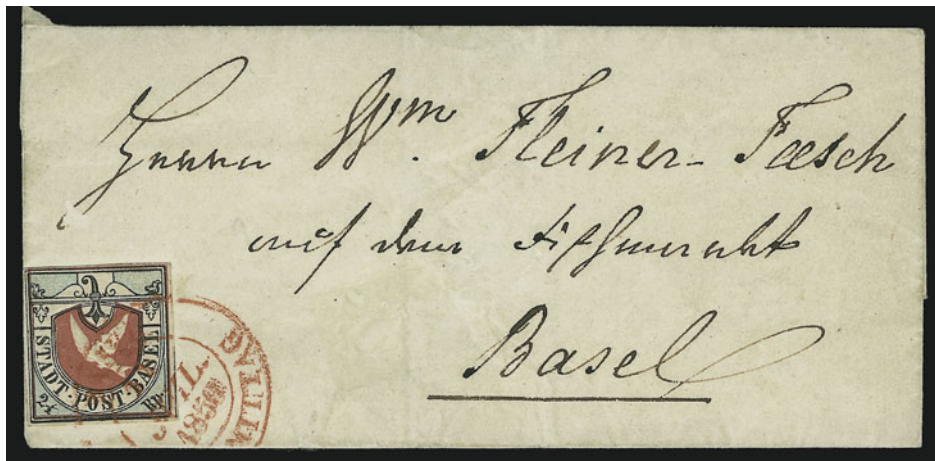 Herrn Wm. Fleiner-Fæsch
auf dem Fischmarkt
Basel
STADT-POST-BASEL
2½ RP.
1850